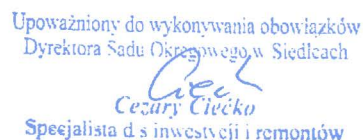 Upoważniony do wykonywania obowiązków
Dyrektora Sądu Okręgowego w Siedlcach
Cezary Ciećko
Specjalista d s inwestycji i remontów